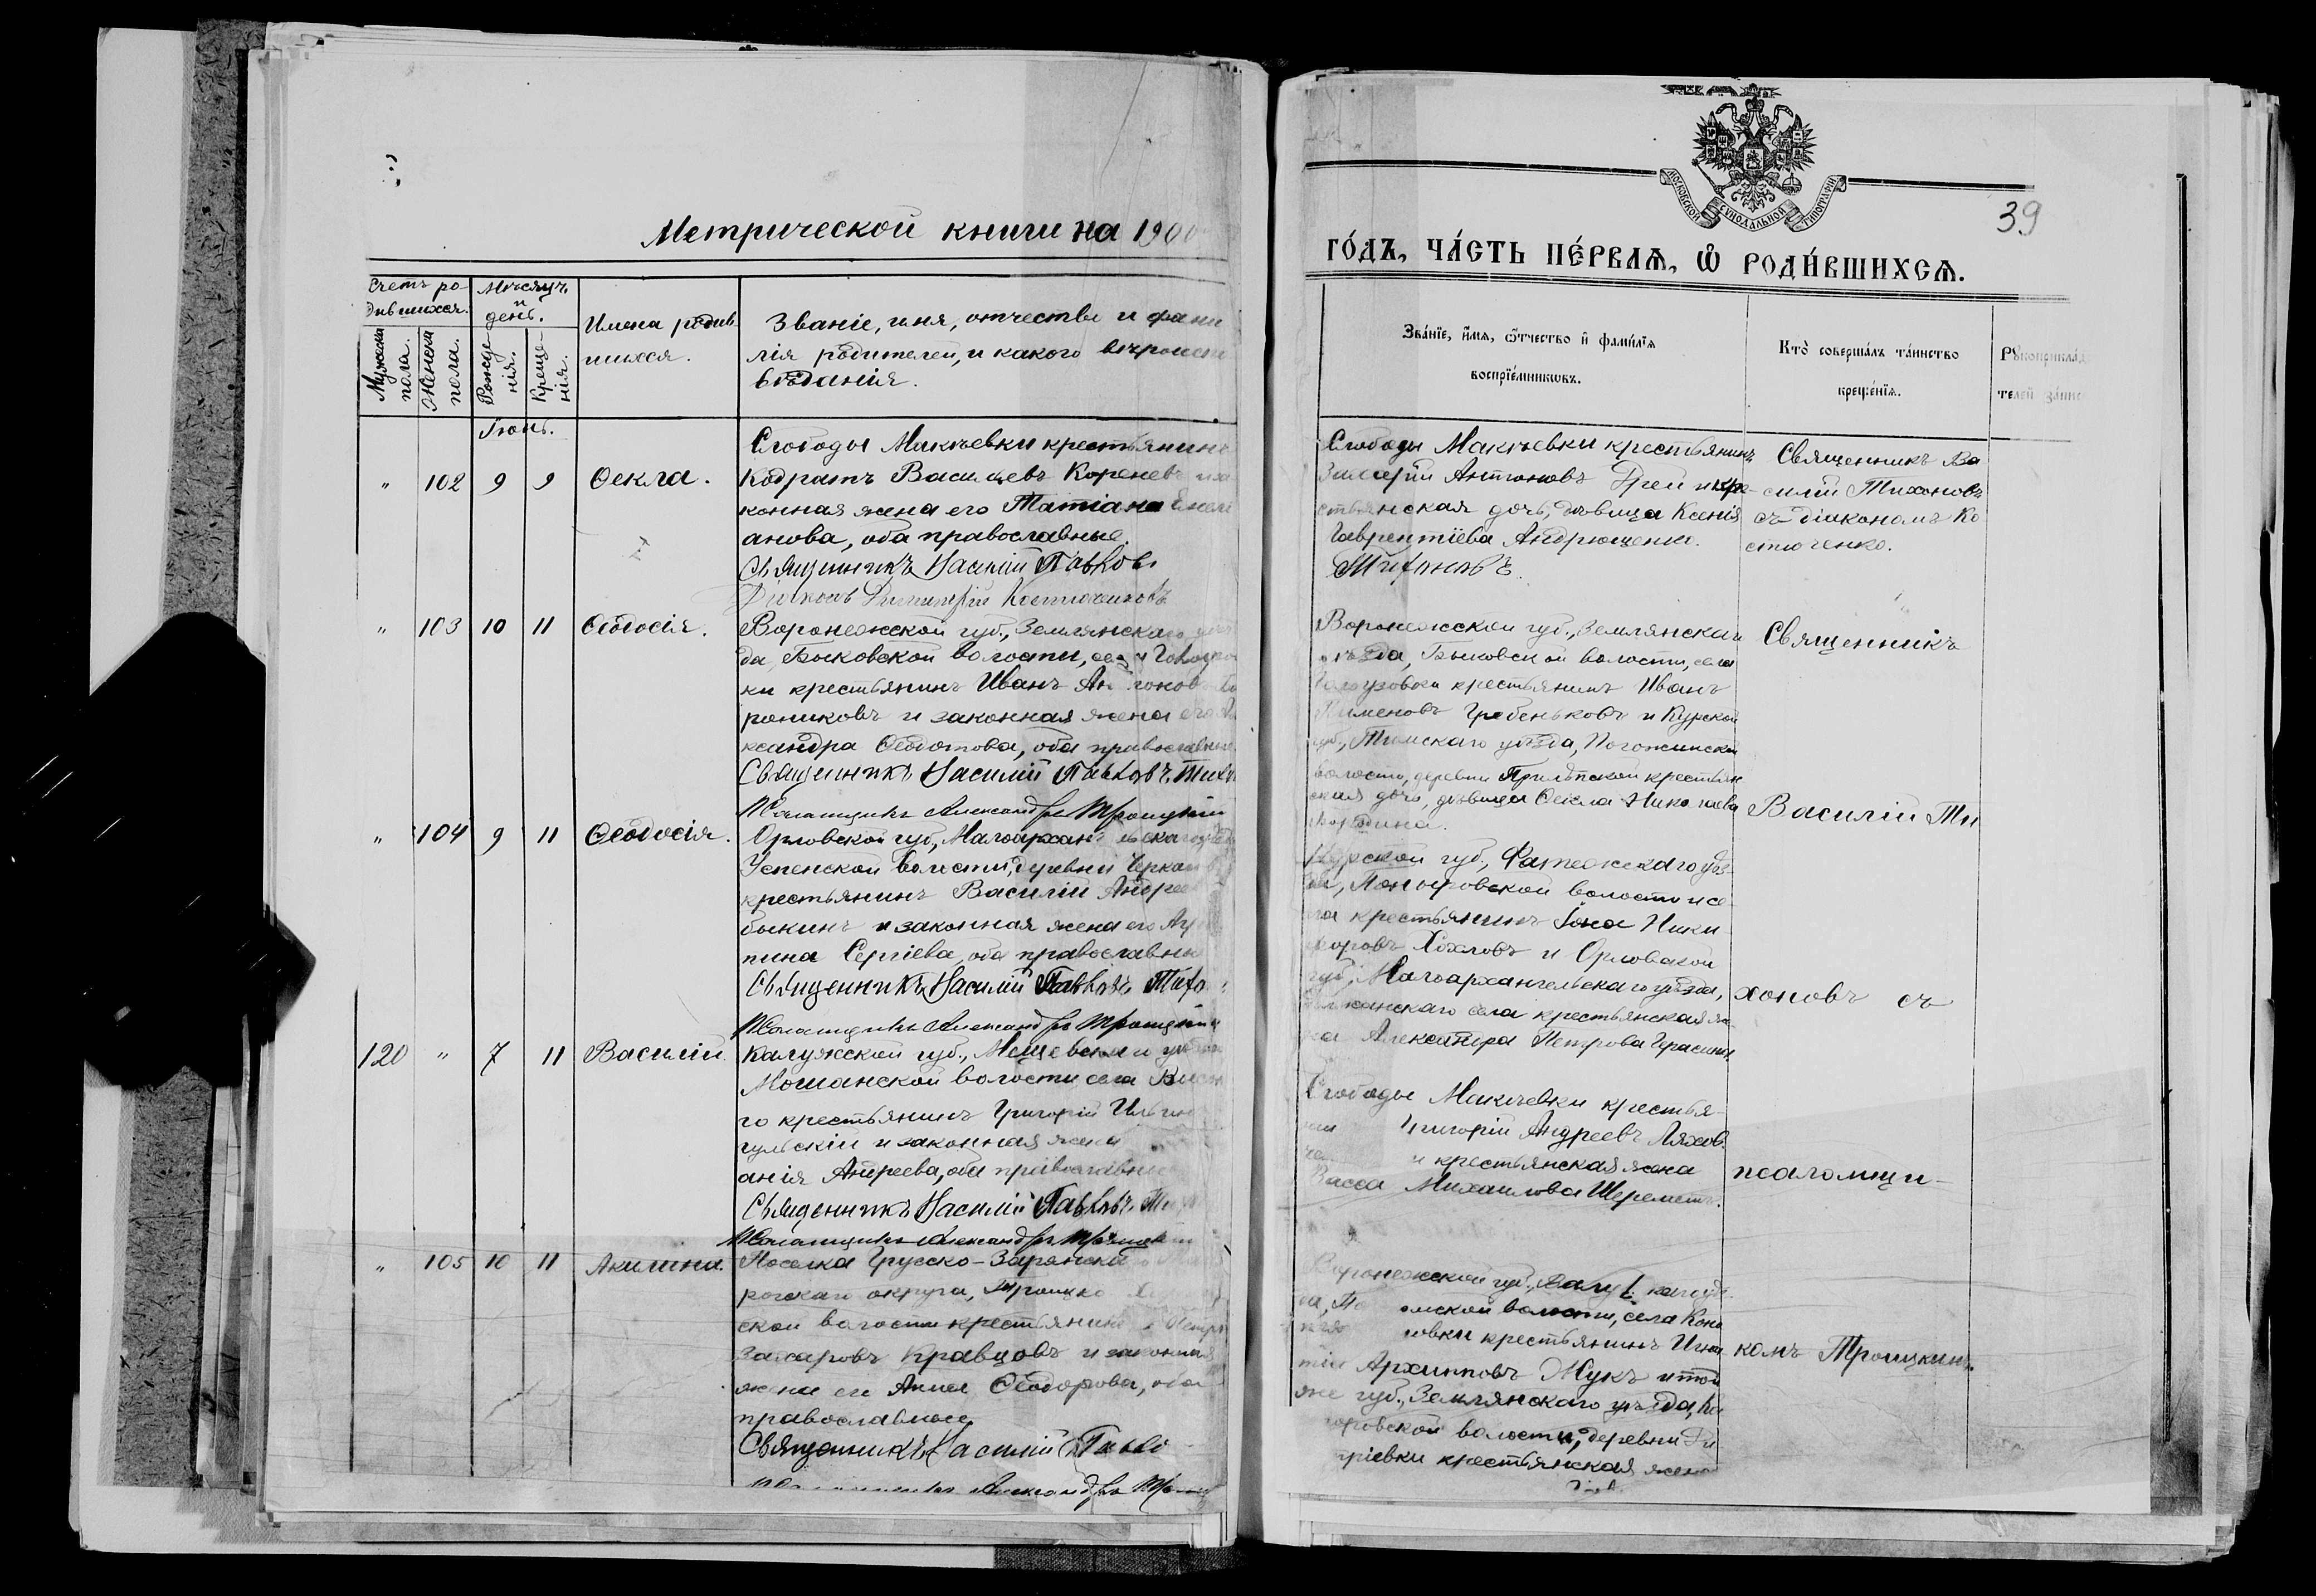 Метрической книги на 1900
39
МОСКОВСКОЙ СѴНОДАЛЬНОЙ ТИПОГРАФІИ
ГО́ДЪ, ЧА́СТЬ ПЕ́РВАѦ, Ѽ РОДИ́ВШИХСѦ.
Счетъ ро-
дившихся.
Мужеска
пола.
Женска
пола.
Мѣсяцъ
и
день.
Рожде-
нія.
Креще-
нія.
Имена родив-
шихся.
Званіе, имя, отчество и фами
лія родителей, и какого вѣроиспо
вѣданія.
Зва́нїе, и҆́мѧ, ѻ҆́тчество и҆ фами́лїѧ
воспрїе́мникѡвъ.
Кто̀ соверша́лъ та́инство
креще́нїѧ.
Рꙋкоприкла́д
телей за́пис
Іюнь.
" 102 9 9 Ѳекла.
Слободы Макѣевки крестьянинъ
Кодратъ Васильевъ Кореневъ и за
конная жена его Татіана Емели
анова, оба православные.
Священникъ Василій Павловъ
Діаконъ Димитрій Костюченковъ
Слободы Макѣевки крестьянинъ
Антоновъ Грей и кре-
стьянская дочь, дѣвица Ксенія
Лаврентіева Андрющенко.
Тихоновъ.
Священникъ Ва
силій Тихоновъ
съ діакономъ Ко
стюченко.
" 103 10 11 Ѳеодосія.
Воронежской губ., Землянскаго уѣз
да, Быковской волости, села
ки крестьянинъ Иванъ Ан
рониковъ и законная жена его Але
ксандра Ѳеодотова, оба православные.
Священникъ Василій Павловъ Тихо
Псаломщикъ Александръ Троицкій
Воронежской губ., Землянскаго
уѣзда, Быковской волости, села
крестьянинъ Иванъ
Пименовъ Гребеньковъ и Курской
губ., Тимскаго уѣзда, Погожинской
волости, деревни Прилѣпской крестьян
ская дочь, дѣвица Ѳекла Николаева
Священникъ
Василій Ти
" 104 9 11 Ѳеодосія.
Орловской губ., Малоархангельскаго уѣзда
Успенской волости, деревни
крестьянинъ Василій Андреев
быкинъ и законная жена его Агри
пина Сергіева, оба православные
Священникъ Василій Павловъ Тихо
Псаломщикъ Александръ Троицкій
Курской губ., Фатежскаго уѣз-
да, Поныровской волости и се-
ла крестьянинъ Іона Ники-
форовъ Хохловъ и Орловской
губ., Малоархангельскаго уѣзда,
села крестьянская же-
на Александра Петрова
хоновъ съ
120 " 7 11 Василій
Калужской губ., Мещовскаго уѣзда
Мошанской волости села
го крестьянинъ Григорій Ильин
гульскій и законная жена
анія Андреева, оба православные
Священникъ Василій Павловъ Тихо
Псаломщикъ Александръ Троицкій
Слободы Макѣевки крестья-
Григорій Андреевъ Ляхов
и крестьянская жена
Васса Михайлова Шереметъ.
псаломщи-
" 105 10 11 Акилина.
Поселка Грусско-Зарянска
рогскаго округа, Троицко
ской волости крестьянинъ Петръ
Захаровъ Кравцовъ и законная
жена его Анна Ѳеодорова, оба
православные
Священникъ Василій Павло
Псаломщикъ Александръ Троиц
Воронежской губ.,
волости, села
овки крестьянинъ Игна-
тій Архиповъ Жукъ и той
же губ., Землянскаго уѣзда,
волости, деревни
тріевки крестьянская жена
комъ Троицкимъ.